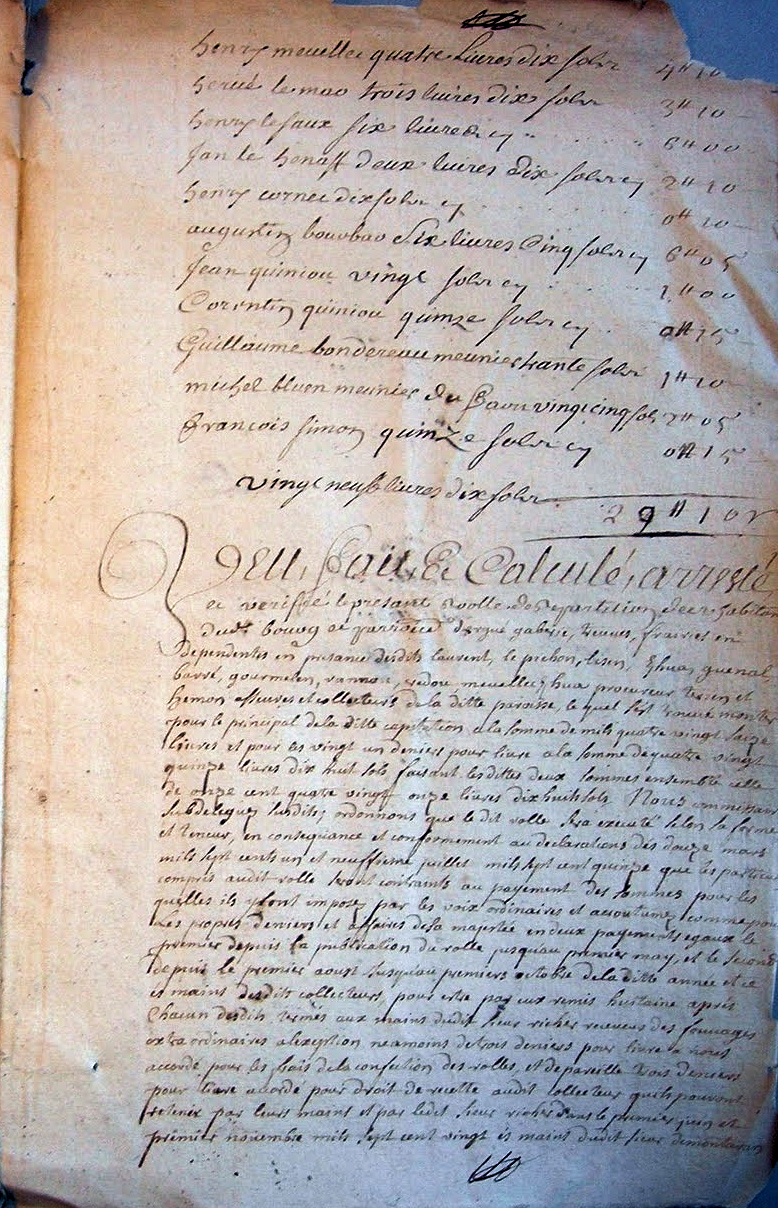 henry mevellec quatre livres dix solz 4# 10
hervé le mao trois livres dix solz 3# 10
henry le faux six livres cy 6# 00
Jan le henaff deux livres dix solz cy 2# 10
henry cornec dix solz cy 0# 10
augustin bourbao Six livres Cinq solz cy 6# 05
Jean quiniou vingt solz cy 1# 00
Corentin quiniou quinze solz cy 0# 15
Guillaume bondereau meunier trante solz 1# 10
michel bluen meunier du vingt cinq sols 05
françois simon quinze solz cy 0# 15
vingt neuff livres dix solz 29# 10s
Veu, Fait, Et Calculé, arresté
et veriffié le presant Rolle de repartition des habitan
dudt bourg et parroice d'ergué gaberic, treuves, frairies en
dependentes en presance desdits laurent, le pichon, lisen, guenal
barré, gourmelen, rannou, credou mevellec, hua procureur terrien et
hemon esgaieurs et collecteurs de la ditte paraisse, lequel s'est trouvé monter
pour le principal de la ditte capitation a la somme de mils quatre vingt saize
livres et pour les vingt un deniers pour livre a la somme de quatre vingt
quinze livres dix huit sols, faisant lesdittes deux sommes ensemble celle
de onze cent quatre vingt onze livres dix huit sols. Nous commissaire
Subdelegué susdit, ordonnons que le dit rolle sera executé selon sa forme
et teneur, en consequance et conformement au declarations des douze mars
mils sept cents un et neuffiesme juillet mils sept cent quinze que les particul
compris audit rolle seront contraints au payement des sommes pour les
quelles ils y sont imposez par les voix ordinaires et acoutumez comme pour
Les propres deniers et affaires de sa majestée en deux payements egaux le
premier depuis la publication du rolle jusqu'au premier may, et le second
depuis le premier aoust jusqu'au premiers octobre de la ditte année et ce
es mains desdits collecteurs, pour estre par eux remis huitaine après
Chacun desdits termes aux mains dudit sieur richer receveur des fouuages
extraordinaires a l'exception neamoins de trois deniers pour livre a nous
accordé pour les frais de la confection des rolles, et de pareille trois deniers
pour livre accordé pour droit de recette audit collecteur qu'ils pouront
retenir par leurs mains et par ledit sieur richer dans le premier juin et
premier novembre mils sept cent vingt es mains dudit sieur